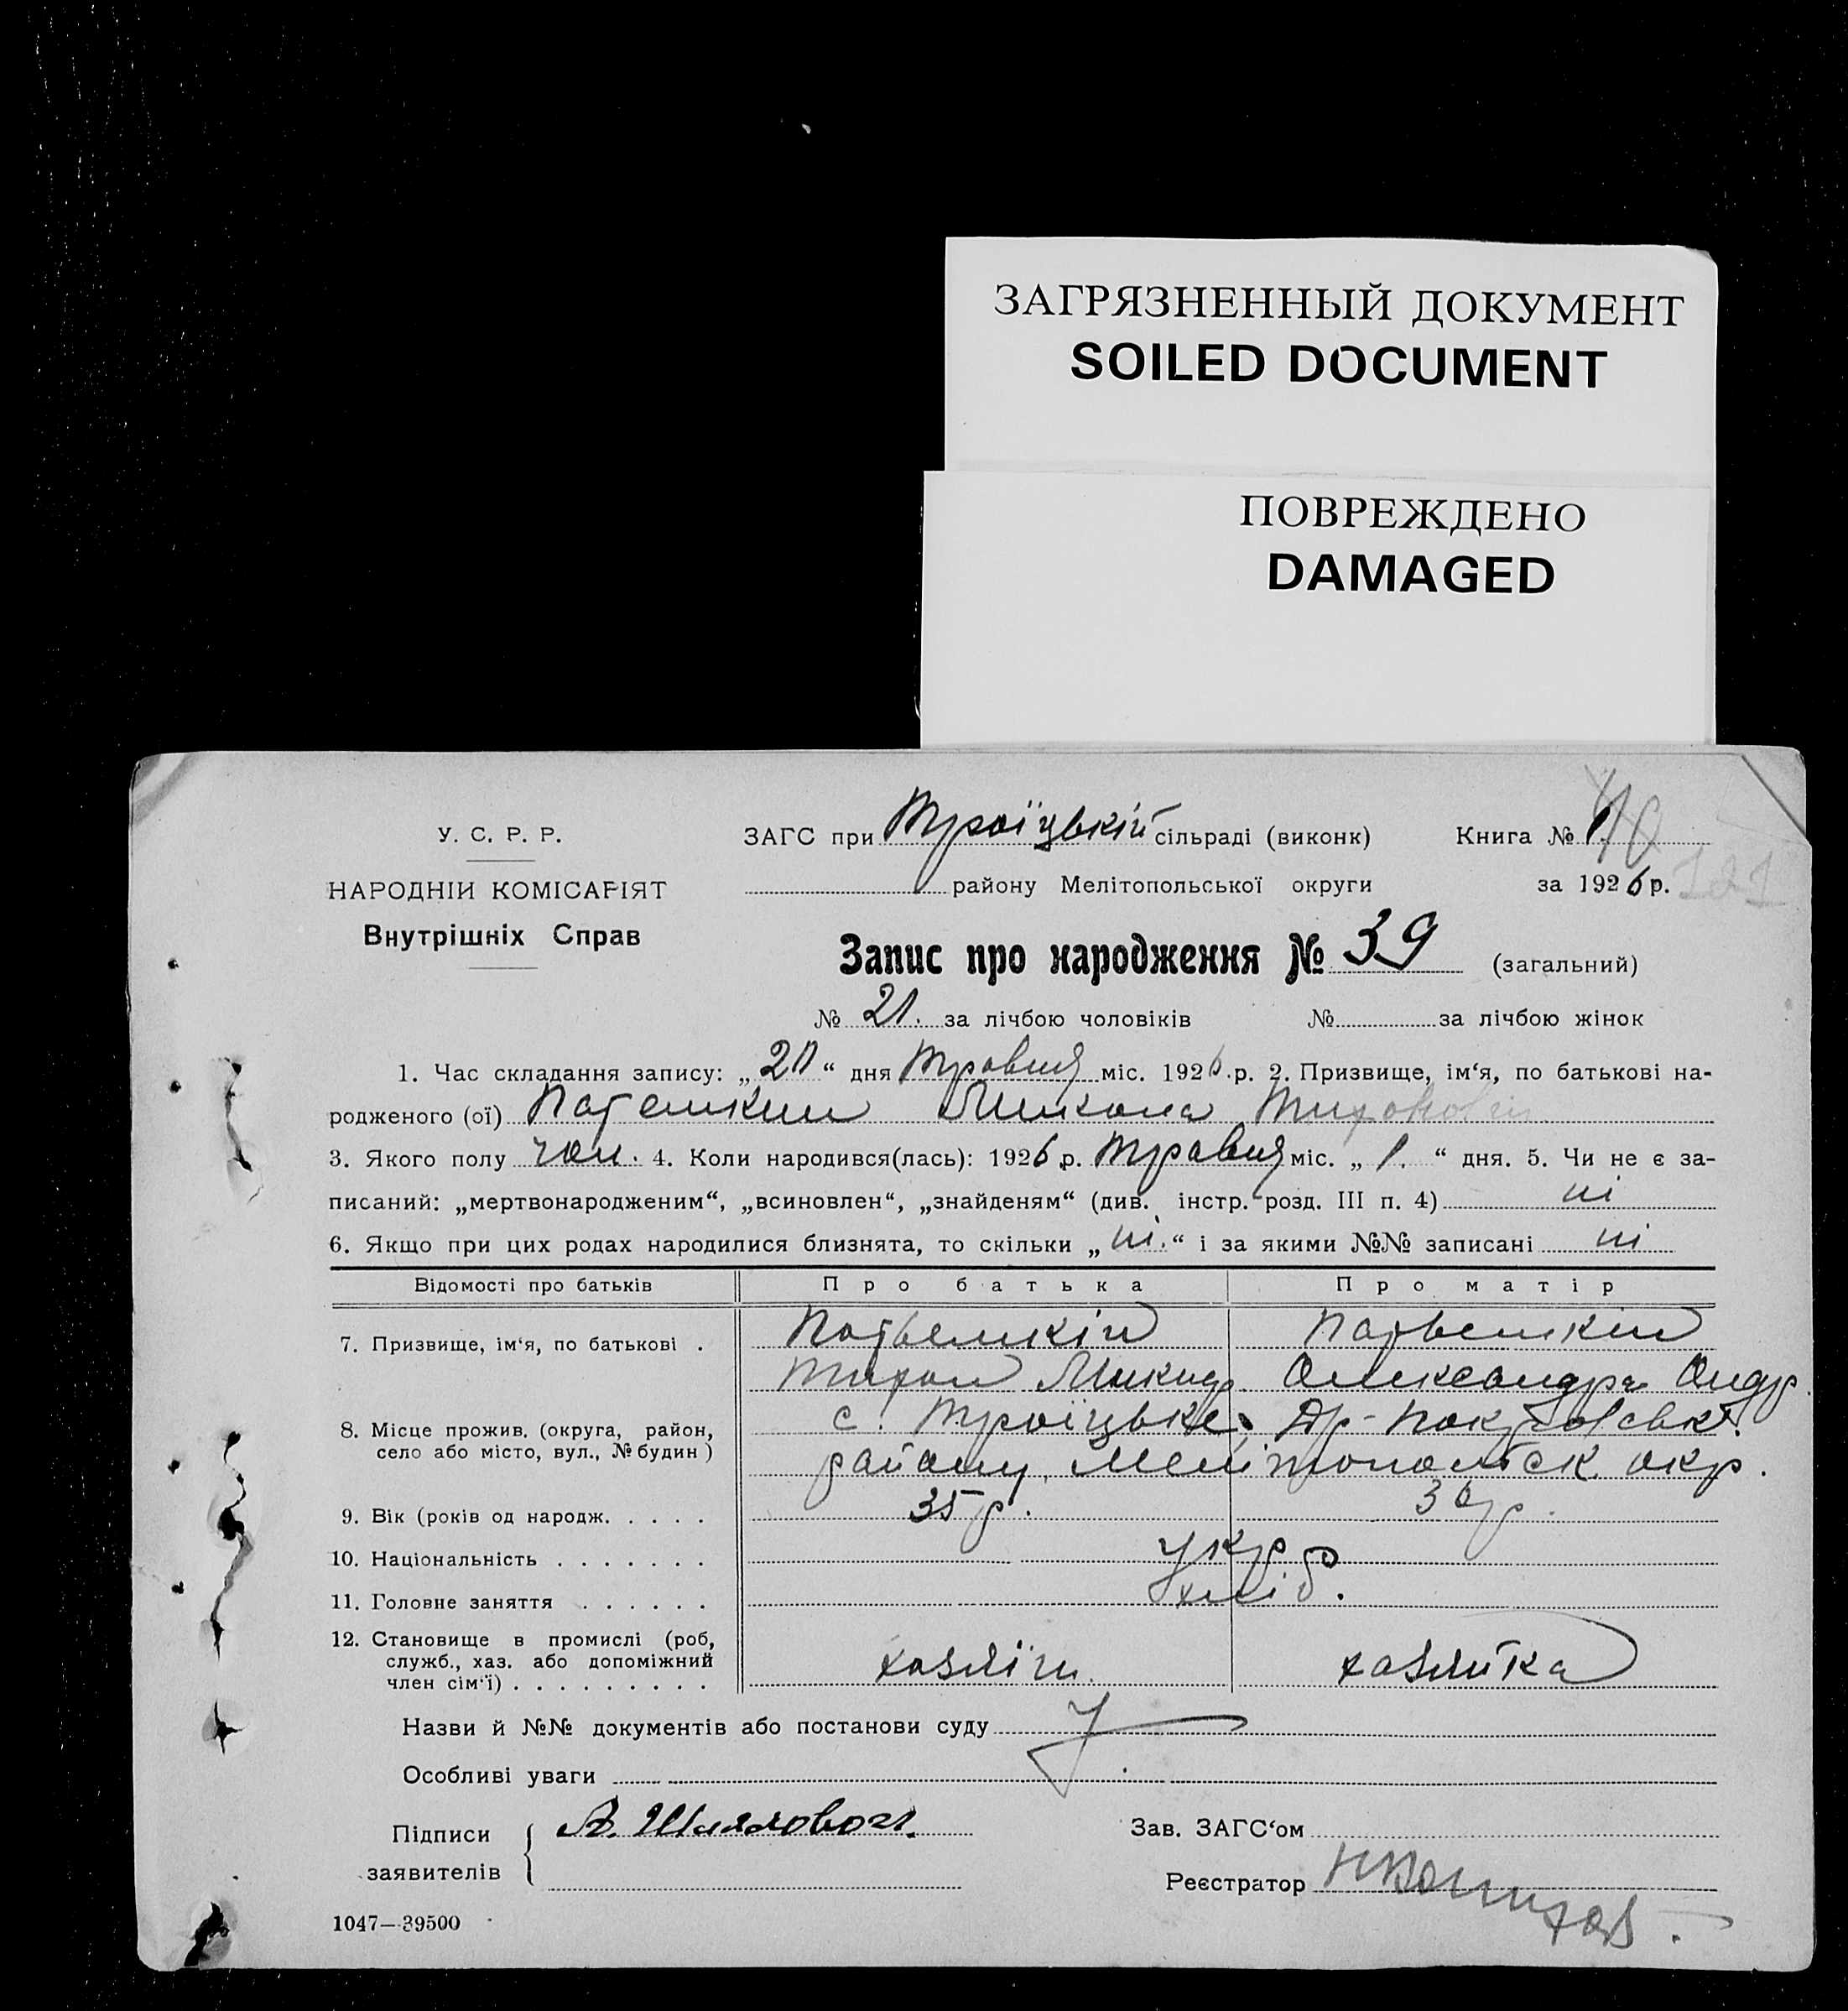 ЗАГРЯЗНЕННЫЙ ДОКУМЕНТ
SOILED DOCUMENT
ПОВРЕЖДЕНО
DAMAGED
У. С. Р. Р.
НАРОДНІЙ КОМІСАРІЯТ
Внутрішніх Справ
ЗАГС при Троїцькій сільраді (виконк) Книга №
району Мелітопольської округи за 1926 р.
Запис про народження № 39 (загальний)
№ 21. за лічбою чоловіків № за лічбою жінок
1. Час складання запису: „21“ дня Травня міс. 1926 р. 2. Призвище, ім‘я, по батькові на-
родженого (ої) Потемкин Микола Тихонович
3. Якого полу чол. 4. Коли народився(лась): 1926 р. Травня міс. „1.“ дня. 5. Чи не є за-
писаний: „мертвонародженим“, „всиновлен“, „знайденям“ (див. інстр. розд. III п. 4) ні
6. Якщо при цих родах народилися близнята, то скільки „ні.“ і за якими №№ записані ні
Відомості про батьків Про батька Про матір
7. Призвище, ім‘я, по батькові . Потьемкін Потьемкін
Тихон Микид. Олександра Андр.
8. Місце прожив. (округа, район,
село або місто, вул., № будин)
с. Троїцьке, Др-Покровськ.
району, Мелітопольск. окр.
9. Вік (років од народж. . . . . 35 р. 36 р.
10. Національність . . . . . . . укр
11. Головне заняття . . . . . . хліб.
12. Становище в промислі (роб,
служб., хаз. або допоміжний
член сім‘ї) . . . . . . . . . хазяїн. хазяйка
Назви й №№ документів або постанови суду
Особливі уваги
Підписи
заявителів
Зав. ЗАГС‘ом
Реєстратор
1047—39500